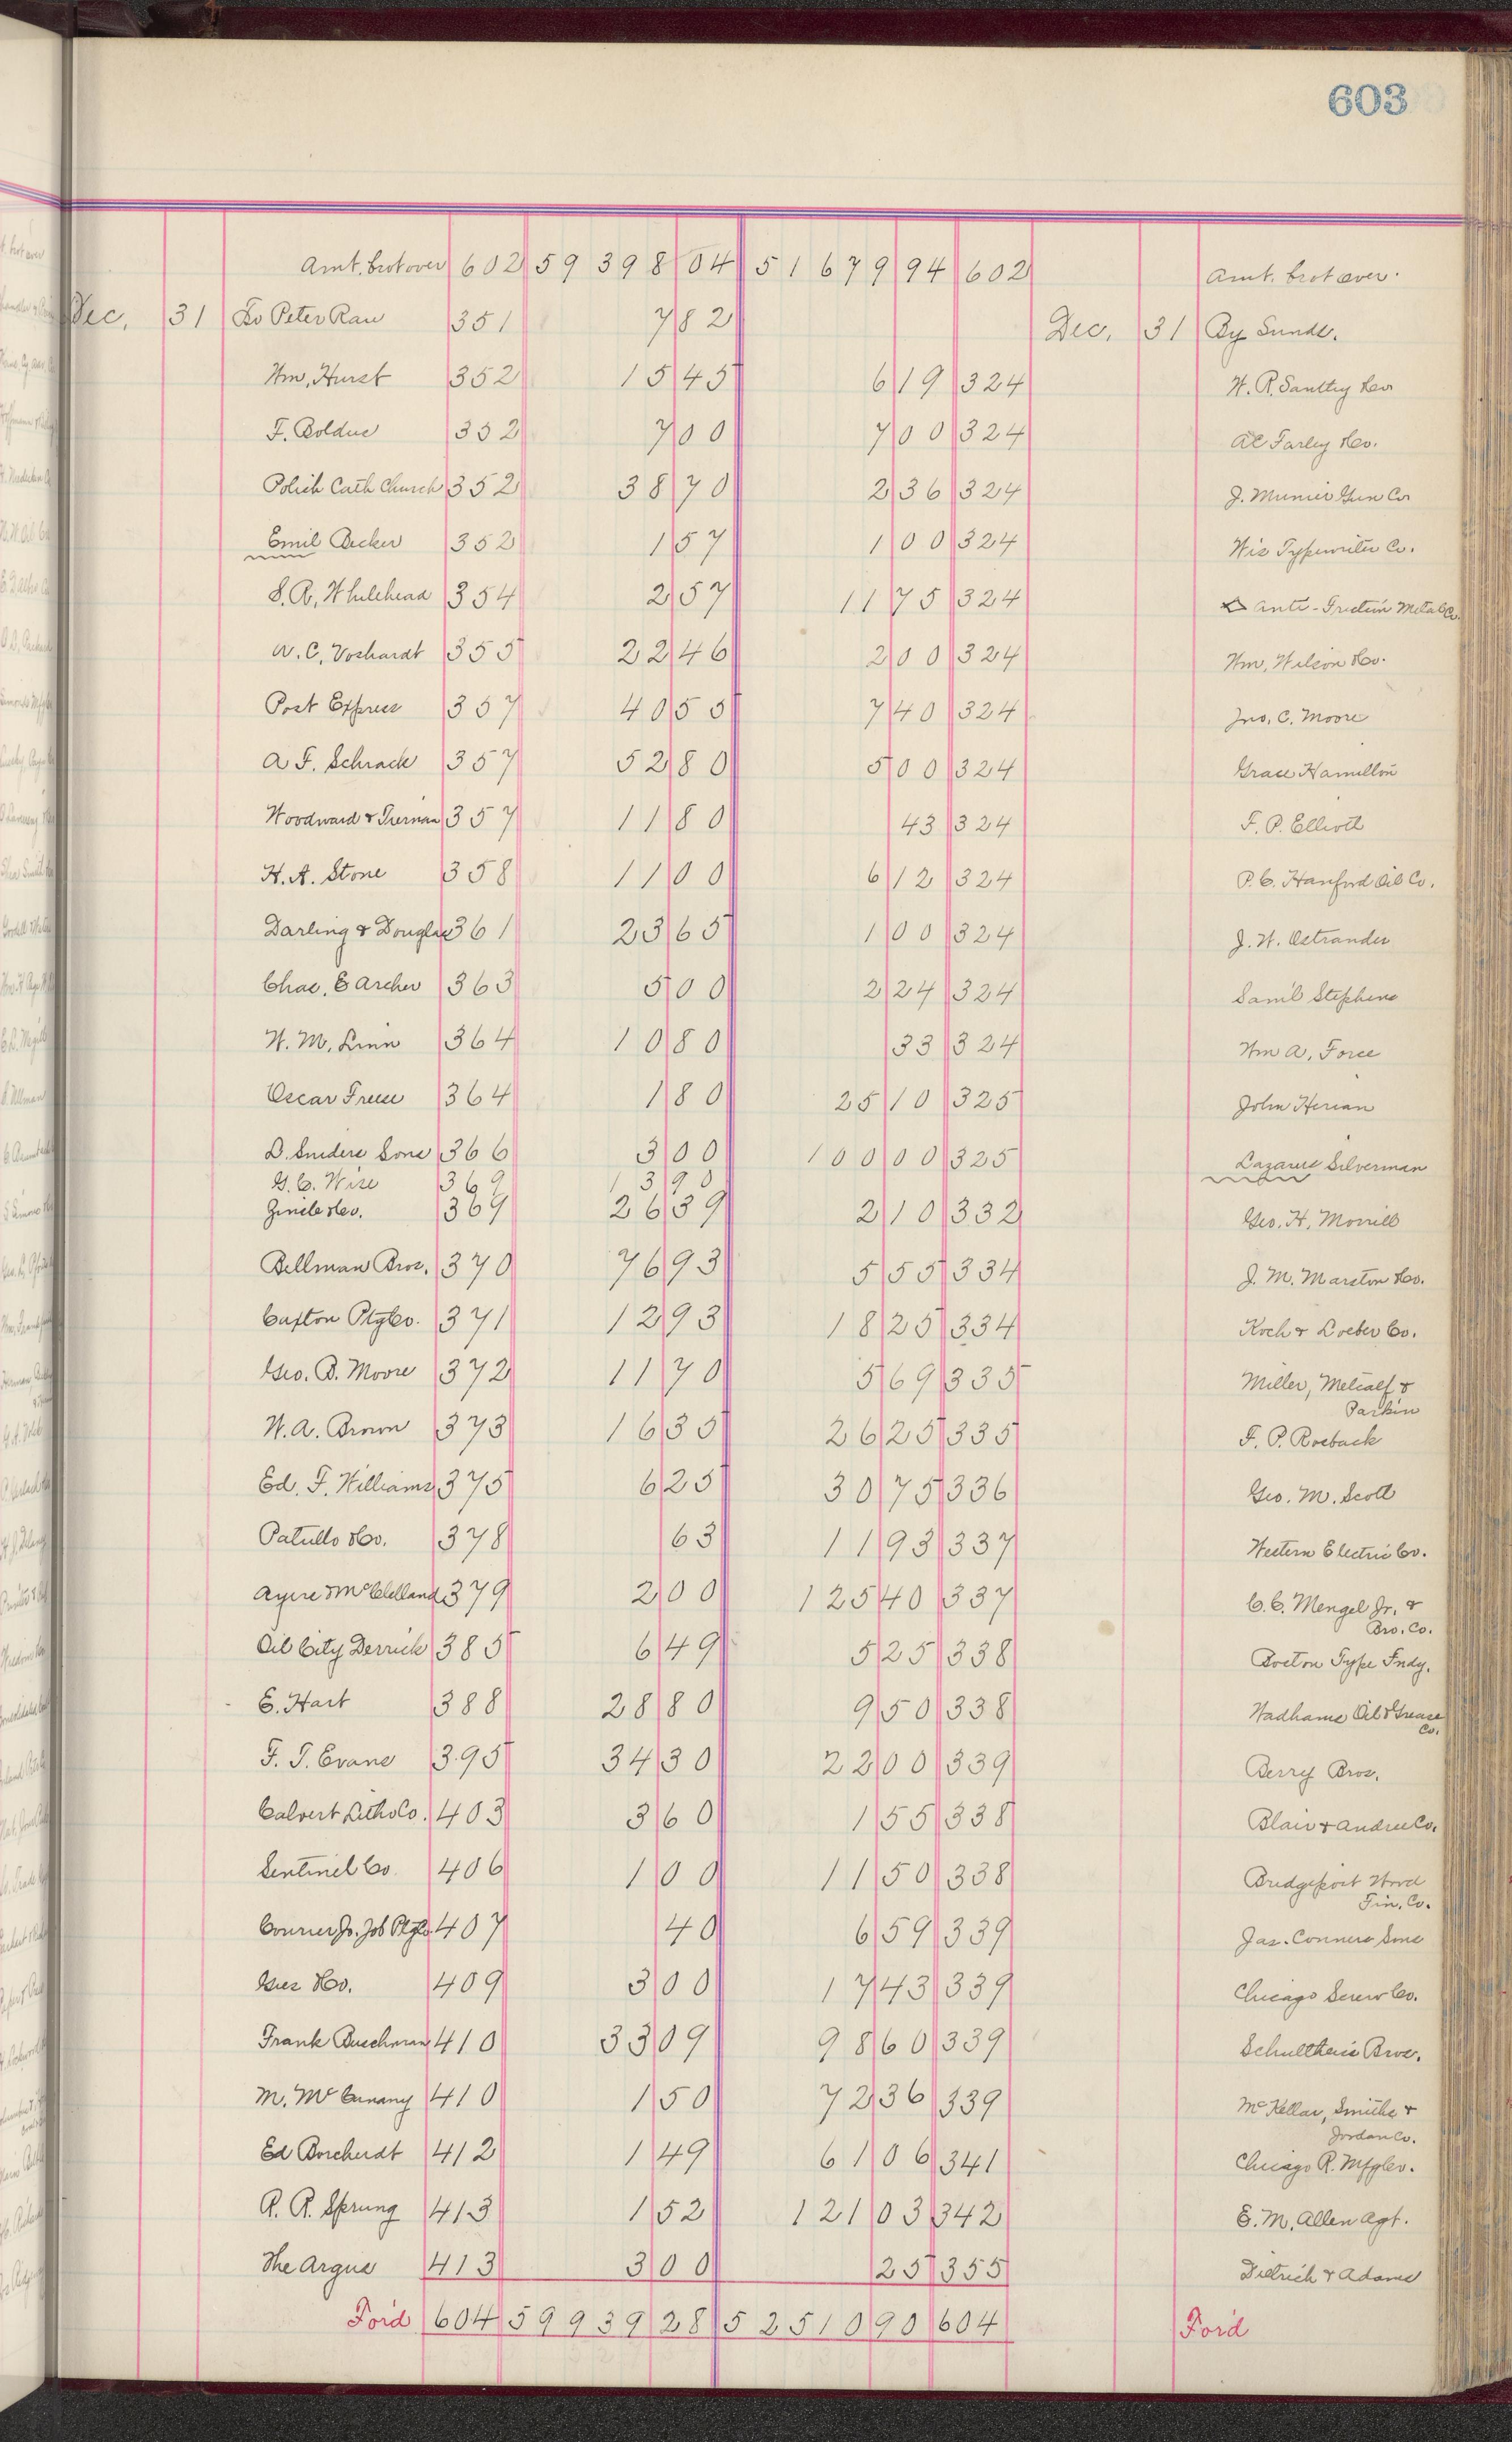 603
Amt. brot over 602 59 398 04 51 679 94 602 Amt. brot over.
Dec. 31 To Peter Rau 351 7 82 Dec. 31 By Sunds.
Wm. Hurst 352 15 45 6 19 324 W. R. Santley &Co
F. Bolduc 352 7 00 7 00 324 AC Farley &Co.
Polish Cath Church 352 38 70 2 36 324 J. Munier Gun Co
Emil Becker 352 1 57 1 00 324 Wis Typewriter Co.
S. R. Whitehead 354 2 57 11 75 324 Anti-Friction Metal Co.
W. C. Voshardt 355 22 46 2 00 324 Wm. Wilson &Co.
Post Express 357 40 55 7 40 324 Jno. C. Moore
A F. Schrack 357 52 80 5 00 324 Grace Hamilton
Woodward & Tiernan 357 11 80 43 324 F. P. Elliott
H. A. Stone 358 11 00 6 12 324 P. C. Hanford Oil Co.
Darling & Douglas 361 23 65 1 00 324 J. W. Ostrander
Chas. E Archer 363 5 00 2 24 324 Sam'l Stephens
W. M. Linn 364 10 80 33 324 Wm A. Force
Oscar Freese 364 1 80 25 10 325 John Herian
D. Sniders Sons 366 3 00 100 00 325 Lazarus Silverman
G. C. Wise 369 13 90
Zinile &Co. 369 26 39 2 10 332 Geo. H. Morrill
Bellman Bros. 370 76 93 5 55 334 J. M. Marston &Co.
Caxton Ptg Co. 371 12 93 18 25 334 Koch & Loeber Co.
Geo. B. Moore 372 11 70 5 69 335 Miller, Metcalf &
Parkin
W. A. Brown 373 16 35 26 25 335 F. P. Rosback
Ed. F. Williams 375 6 25 30 75 336 Geo. M. Scott
Patullo &Co. 378 63 11 93 337 Western Electric Co.
Ayers & McClelland 379 2 00 125 40 337 C. C. Mengel Jr. &
Bro. Co.
Oil City Derrick 385 6 49 5 25 338 Boston Type Fndy.
E. Hart 388 28 80 9 50 338 Wadhams Oil & Grease
Co.
F. T. Evans 395 34 30 22 00 339 Berry Bros.
Calvert Litho Co. 403 3 60 1 55 338 Blair & Andree Co.
Sentinel Co. 406 1 00 11 50 338 Bridgeport Wood
Fin. Co.
Courier Jr. Job Ptg Co 407 40 6 59 339 Jas. Conners Sons
Gies &Co. 409 3 00 17 43 339 Chicago Screw Co.
Frank Buschman 410 33 09 98 60 339 Schultheis Bros.
M. McCunany 410 1 50 72 36 339 McKellar, Smiths &
Jordan Co.
Ed Borcherdt 412 1 49 61 06 341 Chicago R. Mfg Co.
R. R. Sprung 413 1 52 121 03 342 E. M. Allen Agt.
The Argus 413 3 00 25 355 Dietrich & Adams
For'd 604 59 939 28 52 510 90 604 For'd